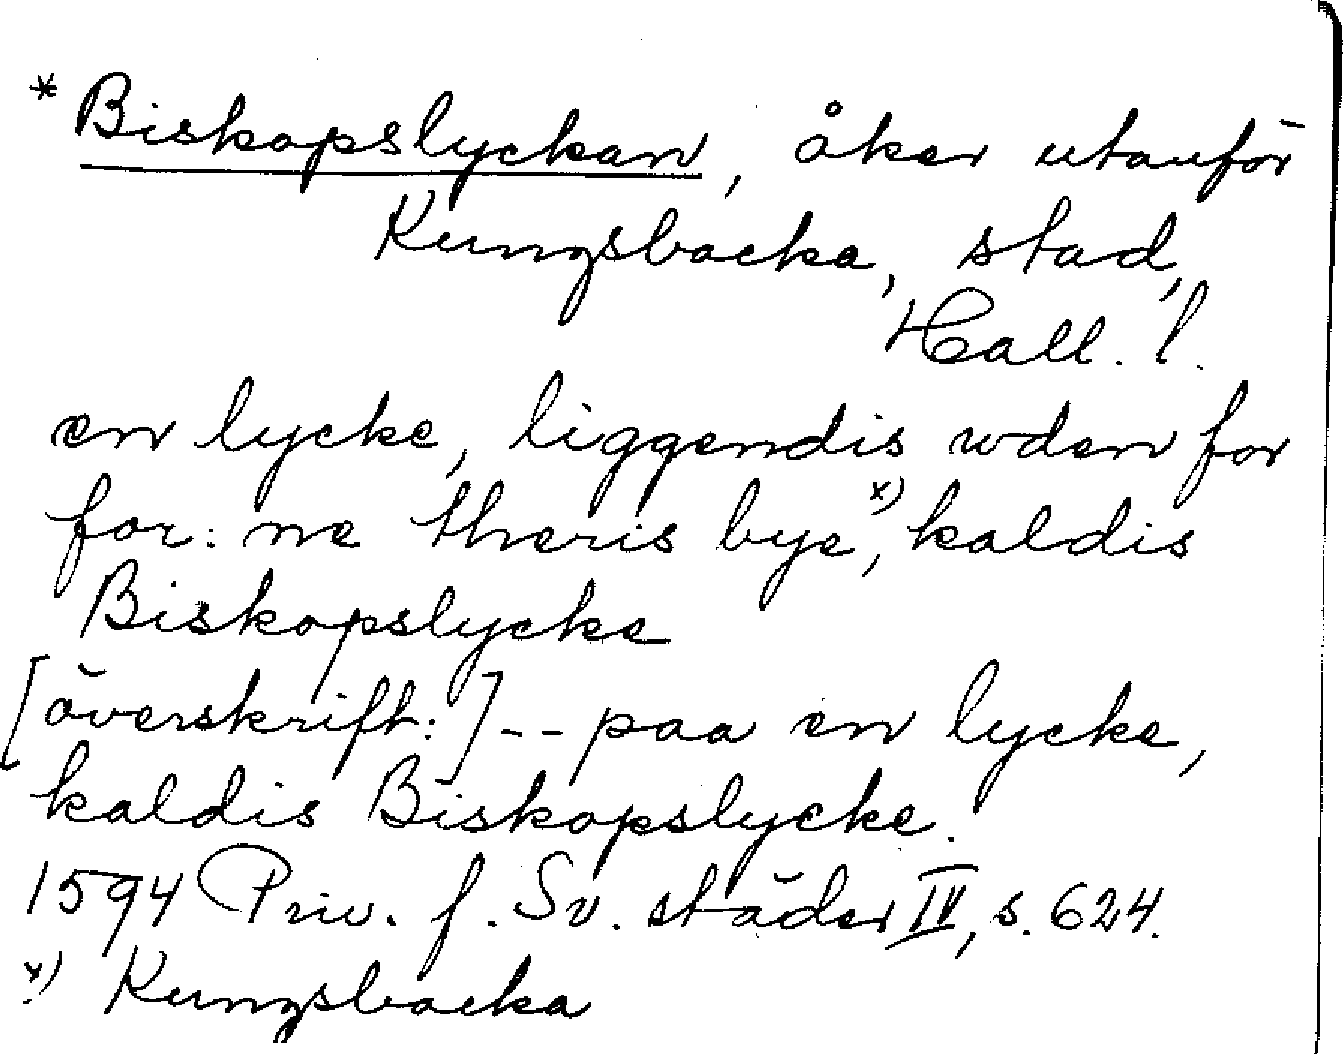 * Biskopslyckan, åker utanför
Kungsbacka, stad,
Hall. l.
en lycke, liggendis wden for
for: ne theris bye, x) kaldis
Biskopslycke
[överskrift:] -- paa en lycke,
kaldis Biskopslycke.
1594 Priv. f. Sv. städer IV, s. 624.
x) Kungsbacka